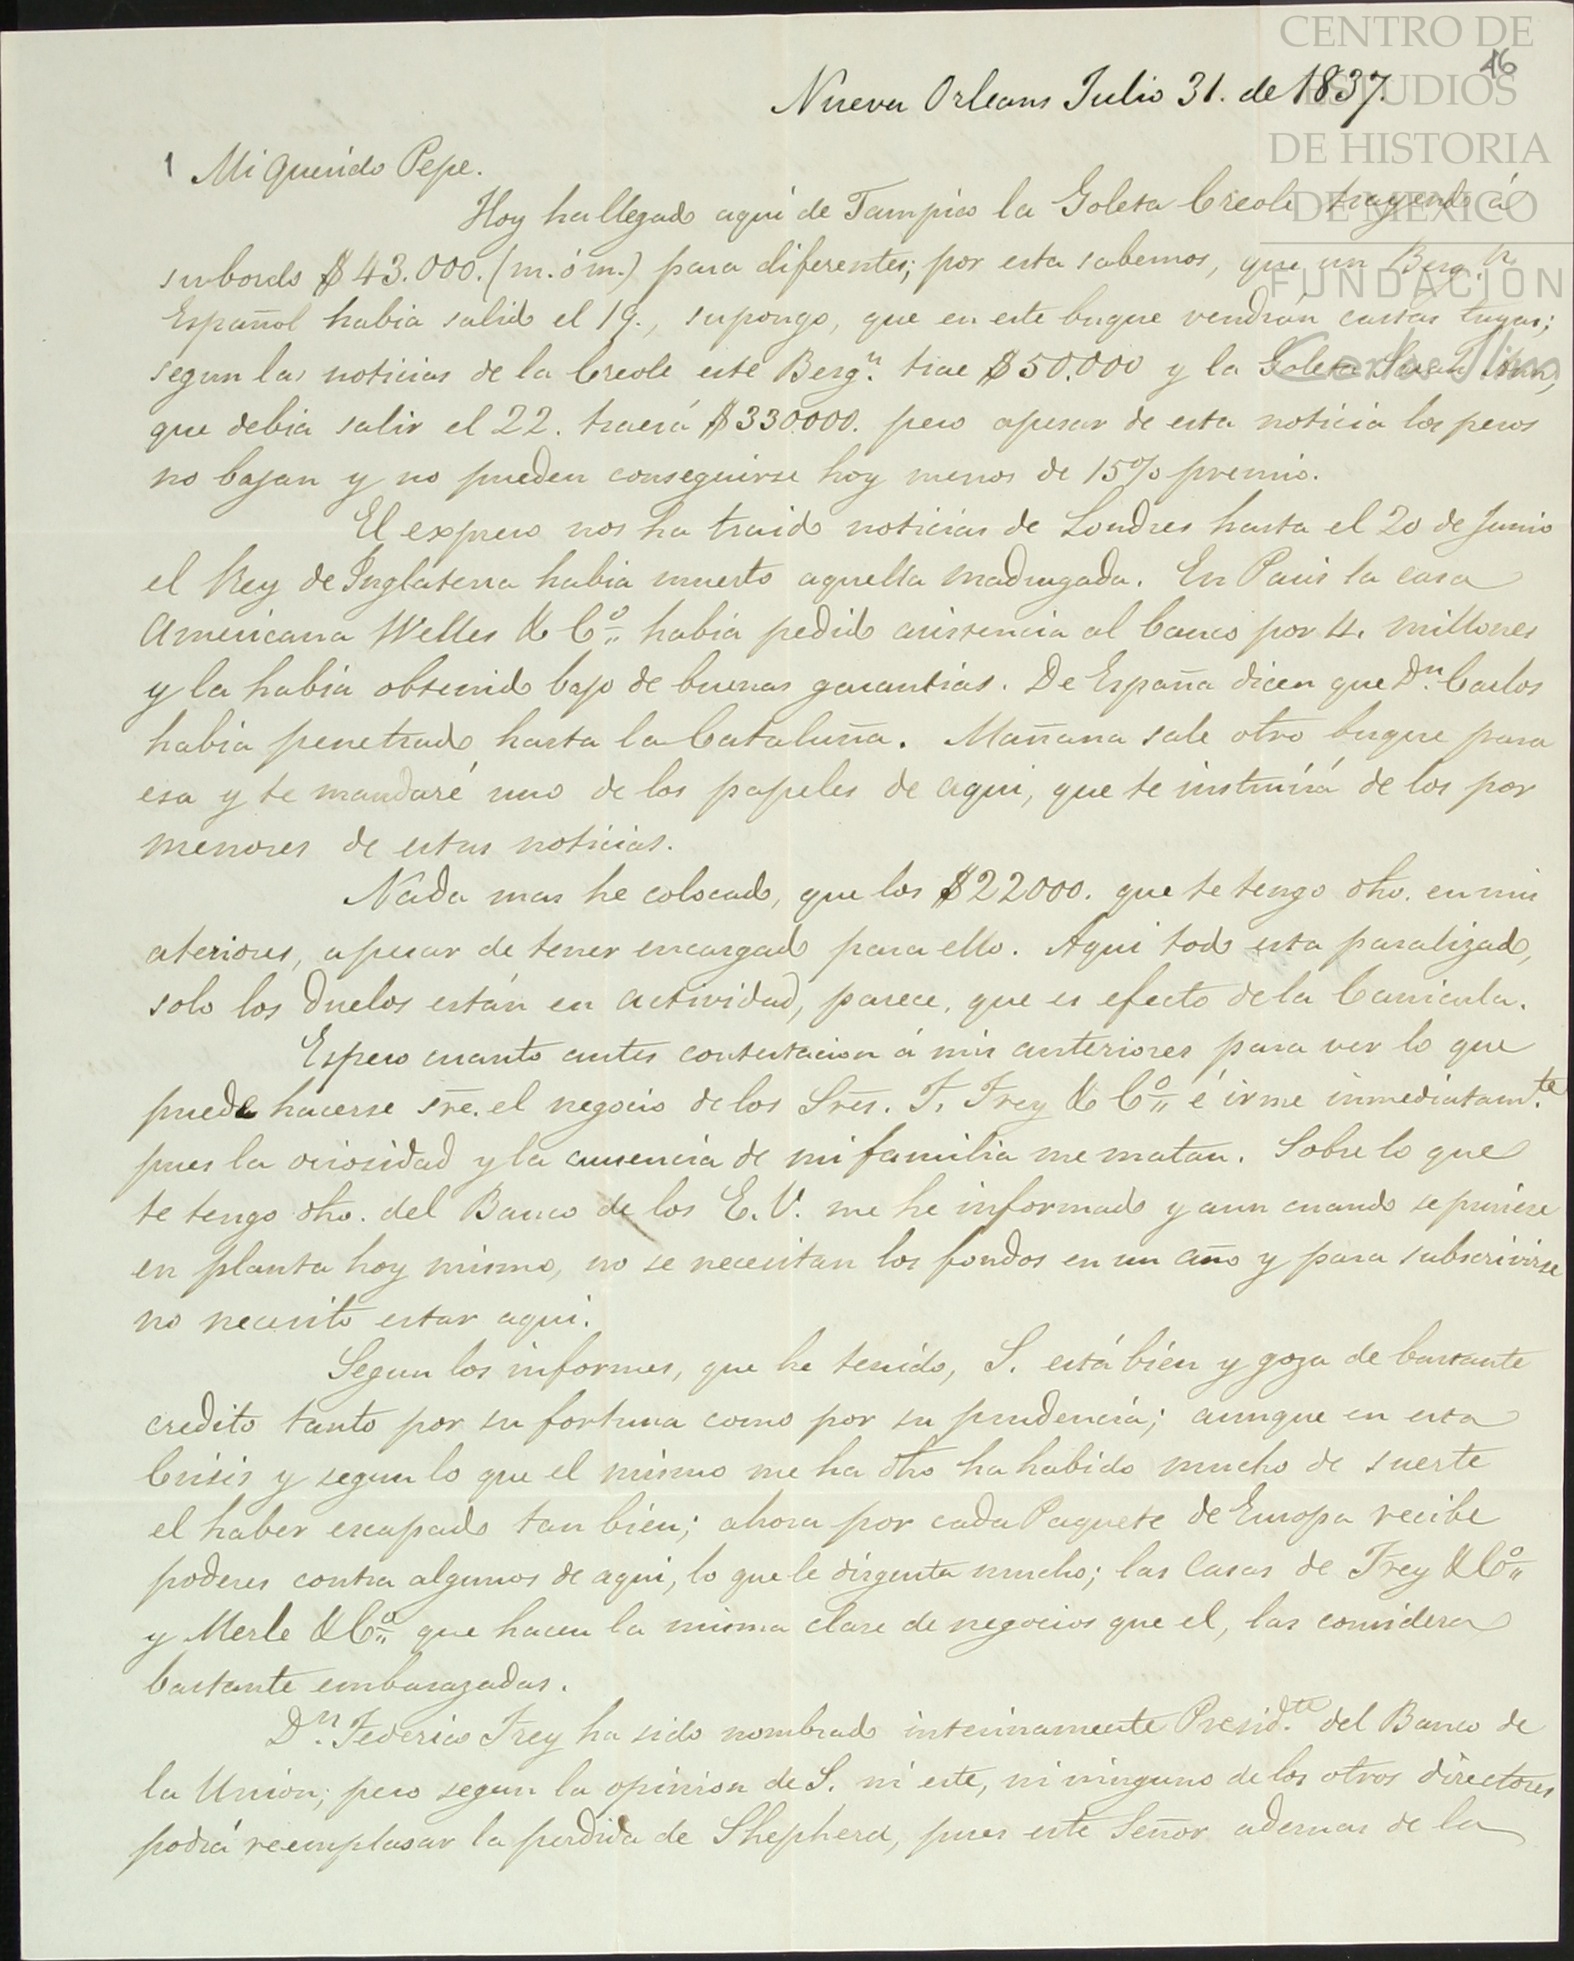 CENTRO DE
ESTUDIOS
DE HISTORIA
DE MEXICO
FUNDACIÓN
Carlos Slim
46
Nueva Orleans Julio 31. de 1837.
1 Mi querido Pepe.
Hoy ha llegado aqui de Tampico la Goleta Creole trayendo á
su bordo $43.000. (m. ó m.) para diferentes; por esta sabemos, que un Berg.n
Español habia salido el 19., supongo, que en este buque vendrán cartas tuyas;
segun las noticias de la Creole este Berg.n trae $50.000 y la Goleta
que debia salir el 22. traerá $330000. pero apesar de esta noticia los pesos
no bajan y no pueden conseguirse hoy menos de 15% premio.
El expreso nos ha traido noticias de Londres hasta el 20 de Junio
el Rey de Inglaterra habia muerto aquella madrugada. En Paris la casa
Americana Welles & Co. habia pedido asistencia al banco por 4. millones
y la habia obtenido bajo de buenas garantias. De España dicen que Dn. Carlos
habia penetrado hasta la Cataluña. Mañana sale otro buque para
esa y te mandaré uno de los papeles de aqui, que te instruirá de los por
menores de estas noticias.
Nada mas he colocado, que los $22000. que te tengo dho. en mis
ateriores, apesar de tener encargado para ello. Aqui todo esta paralizado,
solo los Duelos están en actividad, parece, que es efecto de la Canicula.
Espero cuanto antes contestacion á mis anteriores para ver lo que
puede hacerse sre. el negocio de los Sres. F. Frey & Co. é irme inmediatam.te
pues la ociosidad y la ausencia de mi familia me matan. Sobre lo que
te tengo dho. del Banco de los E. U. me he informado y aun cuando se pusiese
en planta hoy mismo, no se necesitan los fondos en un año y para subscrivirse
no necesito estar aqui.
Segun los informes, que he tenido, S. está bien y goza de bastante
credito tanto por su fortuna como por su prudencia; aunque en esta
Crisis y segun lo que el mismo me ha dho ha habido mucho de suerte
el haber escapado tan bien; ahora por cada Paquete de Europa recibe
poderes contra algunos de aqui, lo que le disgusta mucho; las Casas de Frey & Co.
y Merle & Co. que hacen la misma clase de negocios que el, las considera
bastante embarazadas.
Dn. Federico Frey ha sido nombrado interinamente Presid.te del Banco de
la Union; pero segun la opinion de S. ni este, ni ninguno de los otros directores
podrá reemplasar la perdida de Shepherd, pues este Señor ademas de la